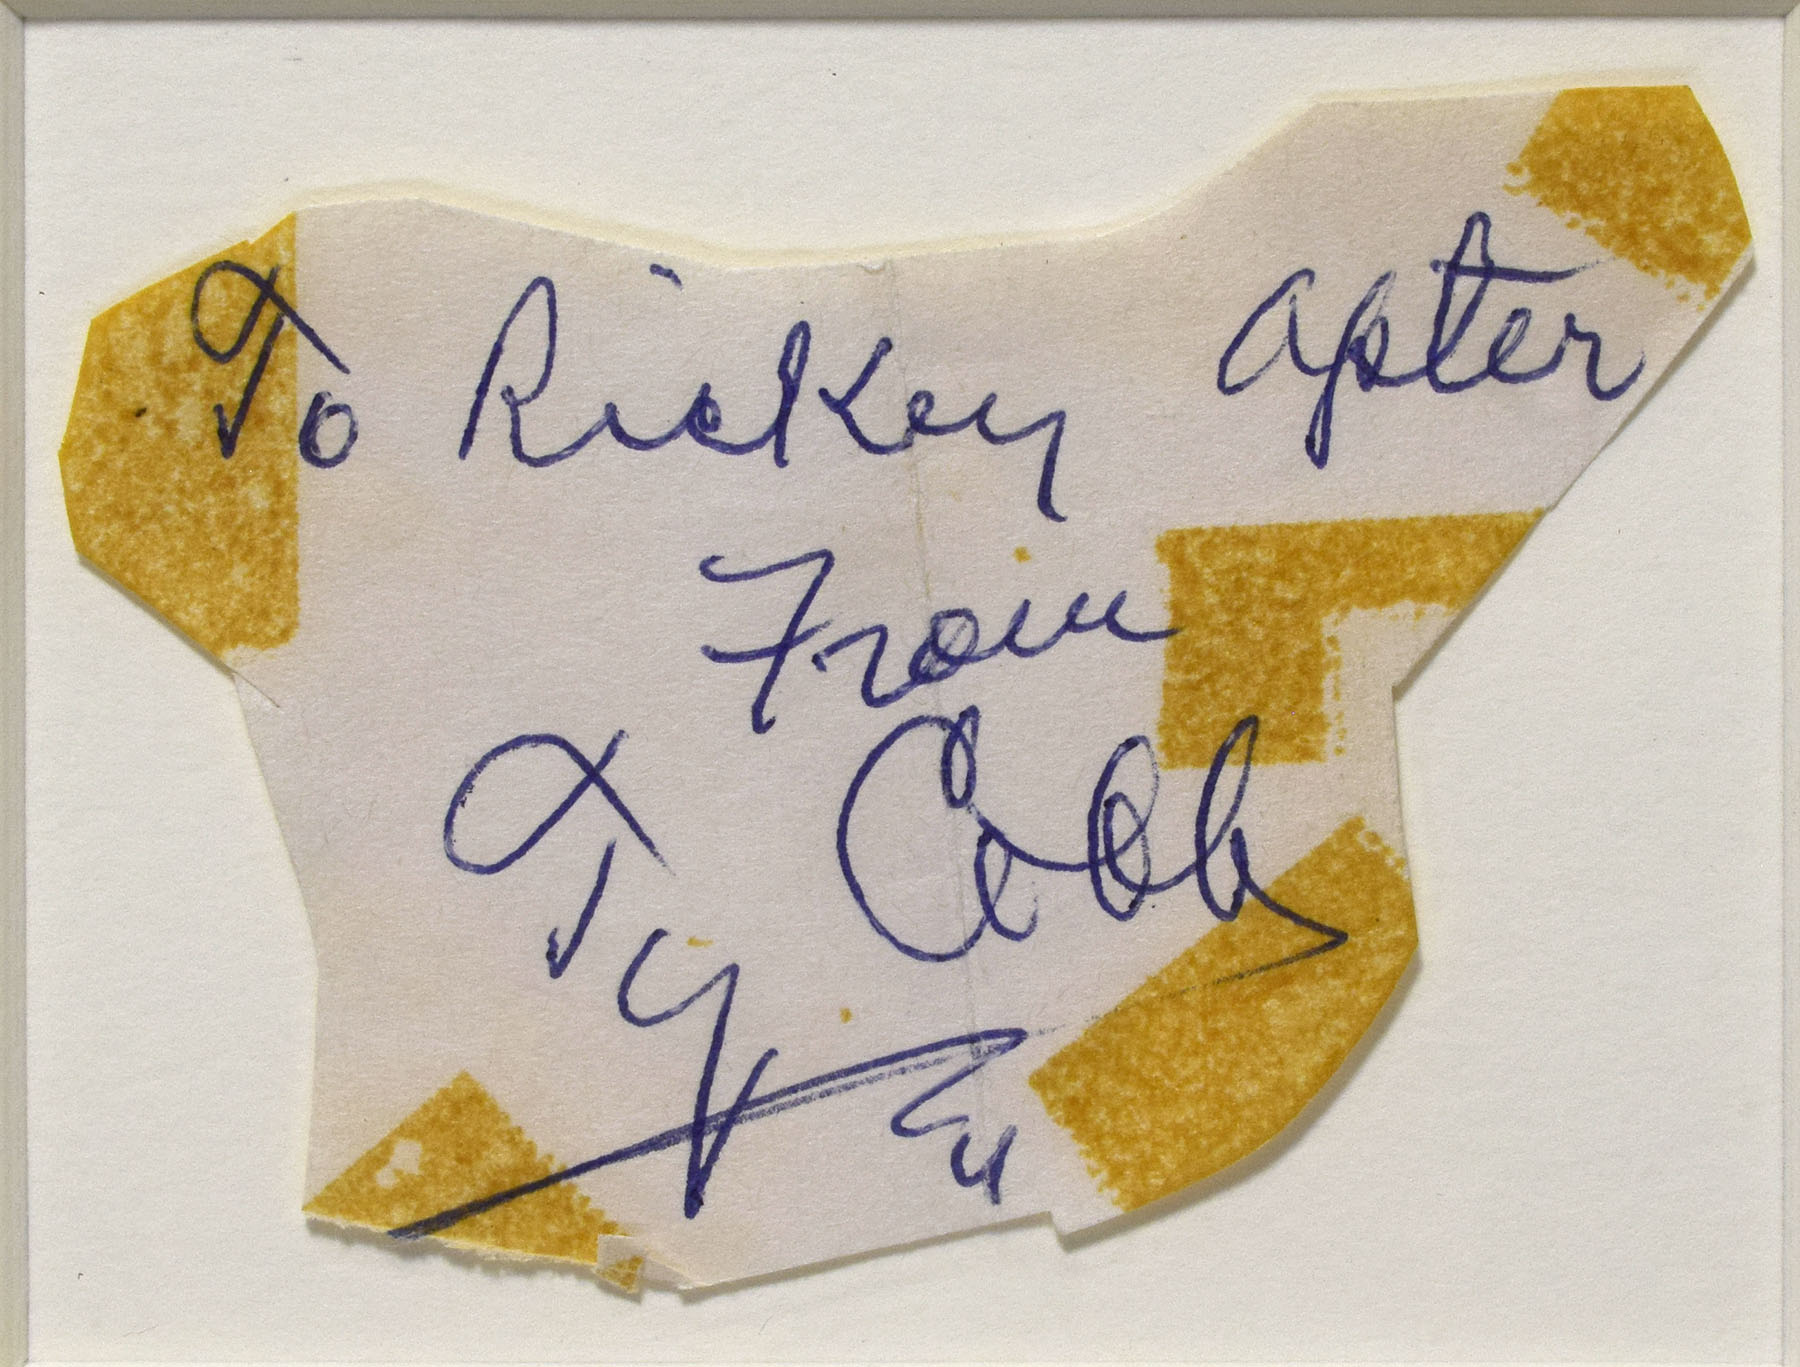 To Rickey apter
From
Ty Cobb